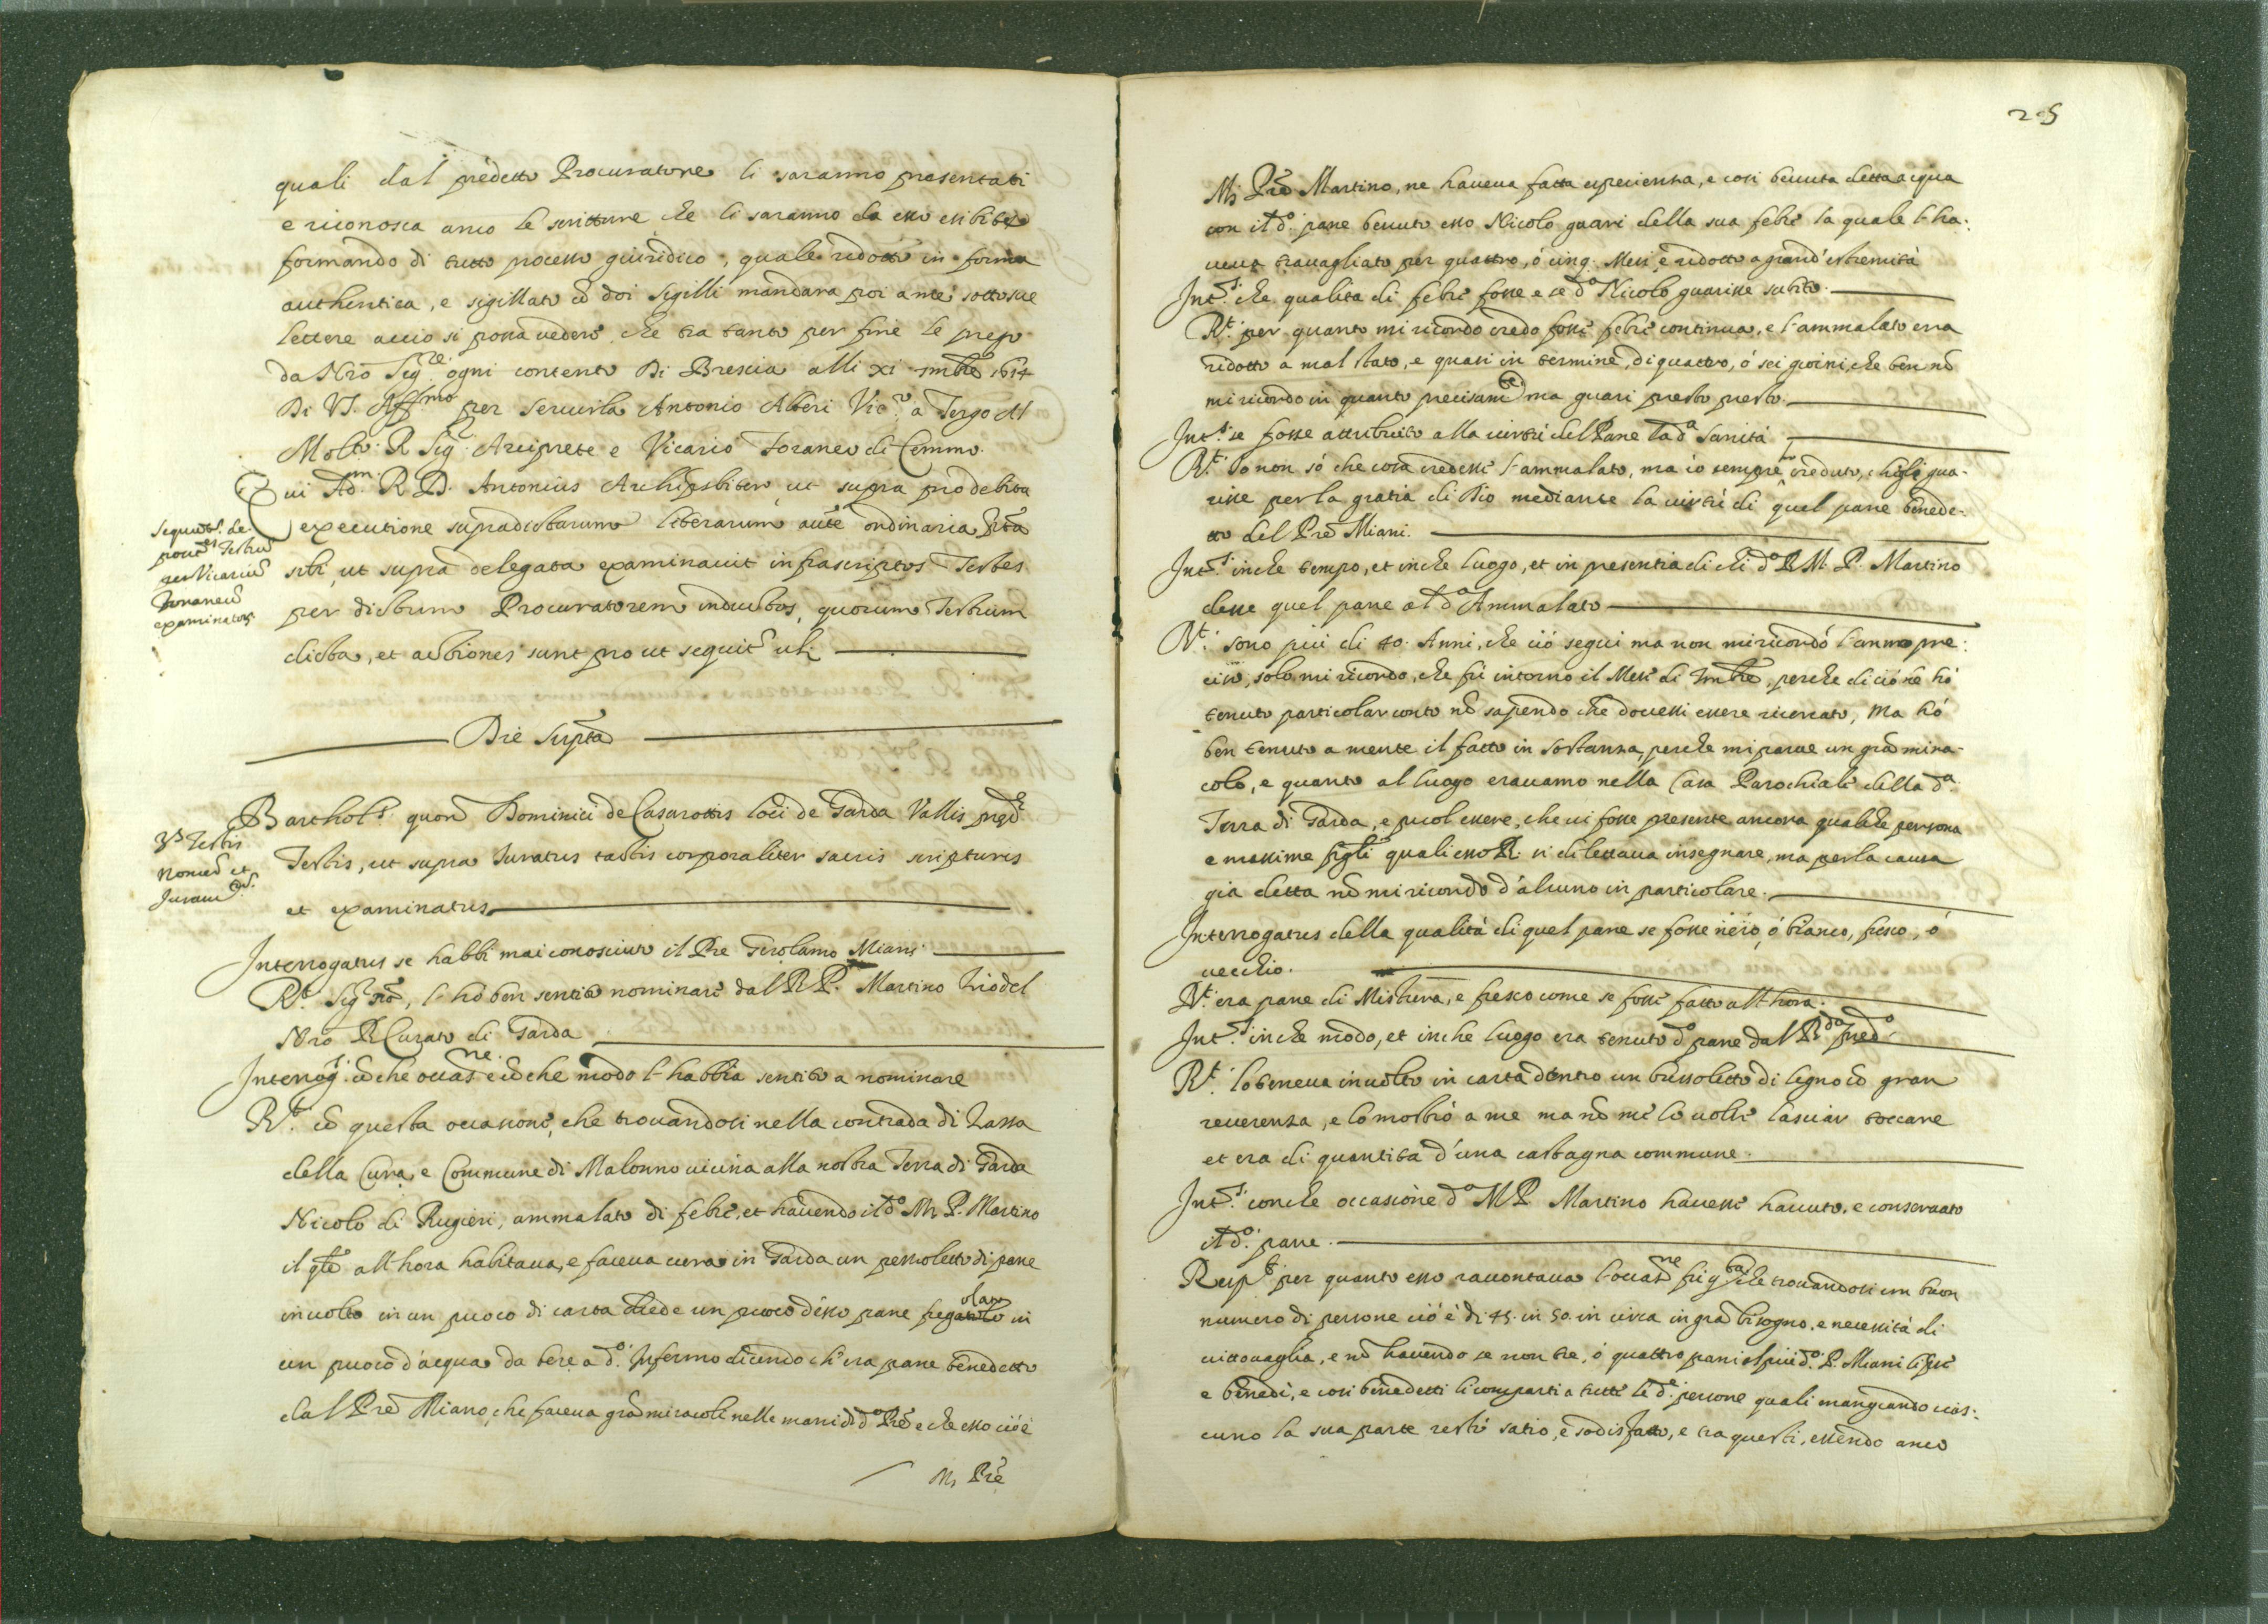 quali dal predetto Procuratore li saranno presentati
e riconosca anco le scritture che li saranno da esso esibite
formando di tutto processo giuridico, quale ridotto in forma
authentica, e sigillato cō doi Sigilli mandara poi a me sotto sue
lettere accio si possa vedere, che tra tanto per fine le prego
da Nrō Sigre ogni contento Di Brescia alli XI 1614
Di VS. Affmo per servirla Antonio Alberi Vico a Tergo Al
Molto R Sigr Arciprete e Vicario Foraneo di Cemmo.
Qui Adm. R D. Antonius Archipsbiter ut supra pro debita
executione supradictarum literarum aucte ordinaria
sibi, ut supra delegata examinavit infrascriptos Testes
per dictum Procuratorem inductos, quorum Testium
dicta, et actiones sunt pro ut sequitr
Die Suprta
Barthols quond Dominici de Casarottis loci de Garda Vallis
Testis, ut supra Juratus tactis corporaliter sacris scripturis
et examinatus
Interrogatus se habbi mai conosciuto il Pre Girolamo Miani
Rt Sigr nō, l'hò ben sentito nominare dal R P. Martino Trio del
Nrō R Curato di Garda
Interrog. cō che occasne e cō che modo l'habbia sentito a nominare
Rt cō questa occasione, che trovandosi nella contrada di Zazza
della Cura, e Commune di Malonno vicina alla nostra Terra di Garda
Nicolo di Rugieri, ammalato di febre, et havendo il do M. P. Martino
il qle all'hora habitava, e faceva cura in Garda un pezzoletto di pane
involto in un puoco di carta diede un puoco d'esso pane fregandolo in
un puoco d'acqua da bere a do Infermo dicendo ch'era pane benedetto
dal Prē Miano, che faceva grā miracoli nelle mani di do Prē e che esso cioè
M. Prē
Sequntr de-
poties Testiū
per Vicariū
Foraneū
examinatos
Testis
Nomen et
Juram
25
M. Prē Martino, ne haveva fatta esperienza, e così bevuta detta acqua
con il do pane bevuto esso Nicolo guarì della sua febre la quale l'ha-
veva travagliato per quattro, ò cinq. Mesi e ridotto a grand'estremità
Ints che qualita di febre fosse e se do Nicolo guarisse subito
Rt per quanto mi ricordo credo fosse febre continua, e l'ammalato era
ridotto a mal stato, e quasi in termine di quattro, ò sei giorni, che ben nō
mi ricordo in quanto precisamte ma guari presto presto.
Ints se fosse attribuito alla virtù del Pane la da Sanità
Rt Io non sò che cosa credesse l'ammalato, ma io sempre hò creduto, che gli gua-
risse per la gratia di Dio mediante la virtù di quel pane benede-
tto del Prē Miani.
Ints in che tempo, et in che luogo, et in presentia di chi do R M. P. Martino
desse quel pane al do Ammalato
Rt sono più di 40. Anni, che ciò seguì ma non mi ricordo l'anno pre-
ciso, solo mi ricordo, che fù intorno il Mese di perche di ciò nē hò
tenuto particolar conto nō sapendo che dovessi essere ricercato, Ma hò
ben tenuto a mente il fatto in sostanza, perche mi parve un grā mira-
colo, e quanto al luogo eravamo nella Casa Parochiale della da
Terra di Garda, e puol essere, che vi fosse presente ancora qualche persona
e massime figli quali esso R. si dilettava insegnare, ma per la causa
gia detta nō mi ricordo d'alcuno in particolare.
Interrogatus della qualità di quel pane se fosse nero, ò bianco, fresco, ò
vecchio.
Rt era pane di Mistura, e fresco come se fosse fatto all'hora.
Ints in che modo, et in che luogo era tenuto do pane dal Rdo predo
Rt lo teneva involto in carta dentro un bussoletto di legno cō gran
reverenza, e lo mostrò a me ma nō me lo volse lasciar toccare
et era di quantita d'una castagna commune.
Ints con che occasione do M P. Martino havesse havuto, e conservato
il do pane.
Respt per quanto esso raccontava l'occasne fù qsta che trovandosi un buon
numero di persone ciò è di 45. in 50. in circa in grā bisogno, e necessità di
vittovaglia, e nō havendo se non tre, ò quattro pani al più do P. Miani li
e benedì, e così benedetti li compartì a tutte le de persone quali mangiando cias-
cuno la sua parte restò satio, e sodisfatto, e tra questi, essendo anco